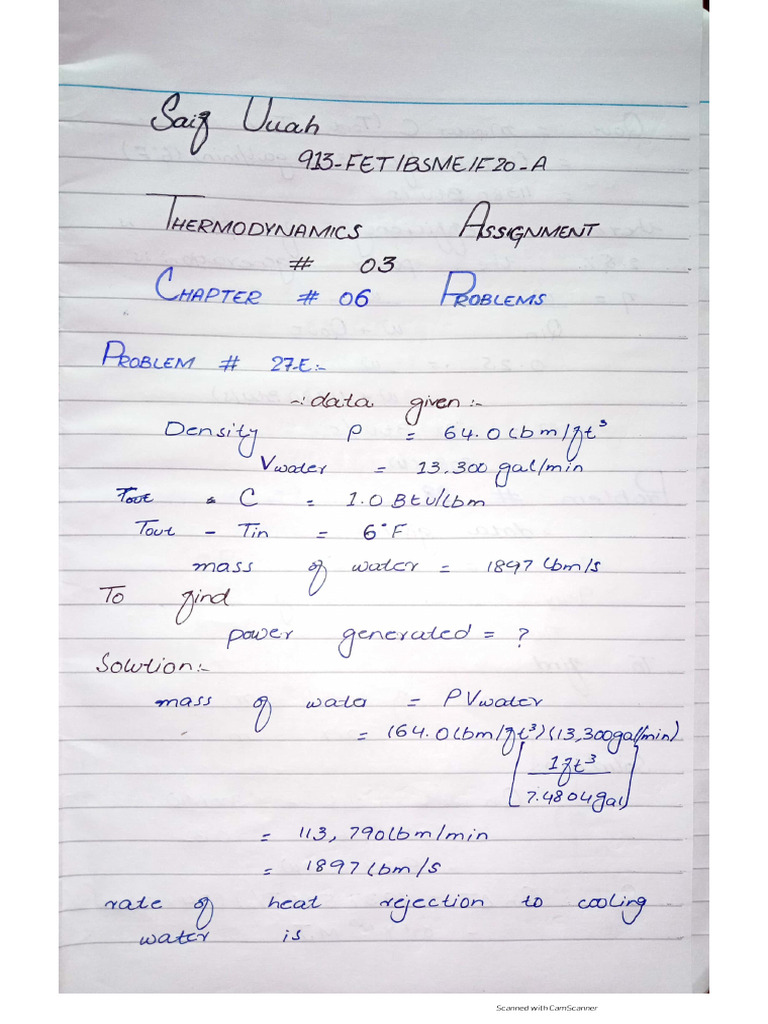 Saif Ullah
913-FET/BSME/F20-A
THERMODYNAMICS ASSIGNMENT
# 03
CHAPTER # 06 PROBLEMS
PROBLEM # 27-E:-
-:data given:-
Density ρ = 64.0 lbm/ft³
Vwater = 13.300 gal/min
Tout C = 1.0 Btu/lbm
Tout - Tin = 6°F
mass of water = 1897 lbm/s
To find
power generated = ?
Solution:-
mass of water = ρVwater
= (64.0 lbm/ft³)(13,300gal/min)
[1ft³
7.4804gal]
= 113,790 lbm/min
= 1897 lbm/s
rate of heat rejection to cooling
water is
Scanned with CamScanner